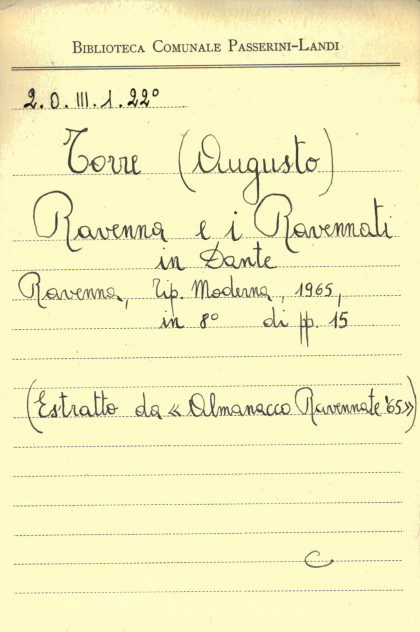 BIBLIOTECA COMUNALE PASSERINI-LANDI
2.O.III.1.22°
Torre (Augusto)
Ravenna e i Ravennati
in Dante
Ravenna, Tip. Moderna, 1965,
in 8° di pp. 15
(Estratto da « Almanacco Ravennate '65»)
C